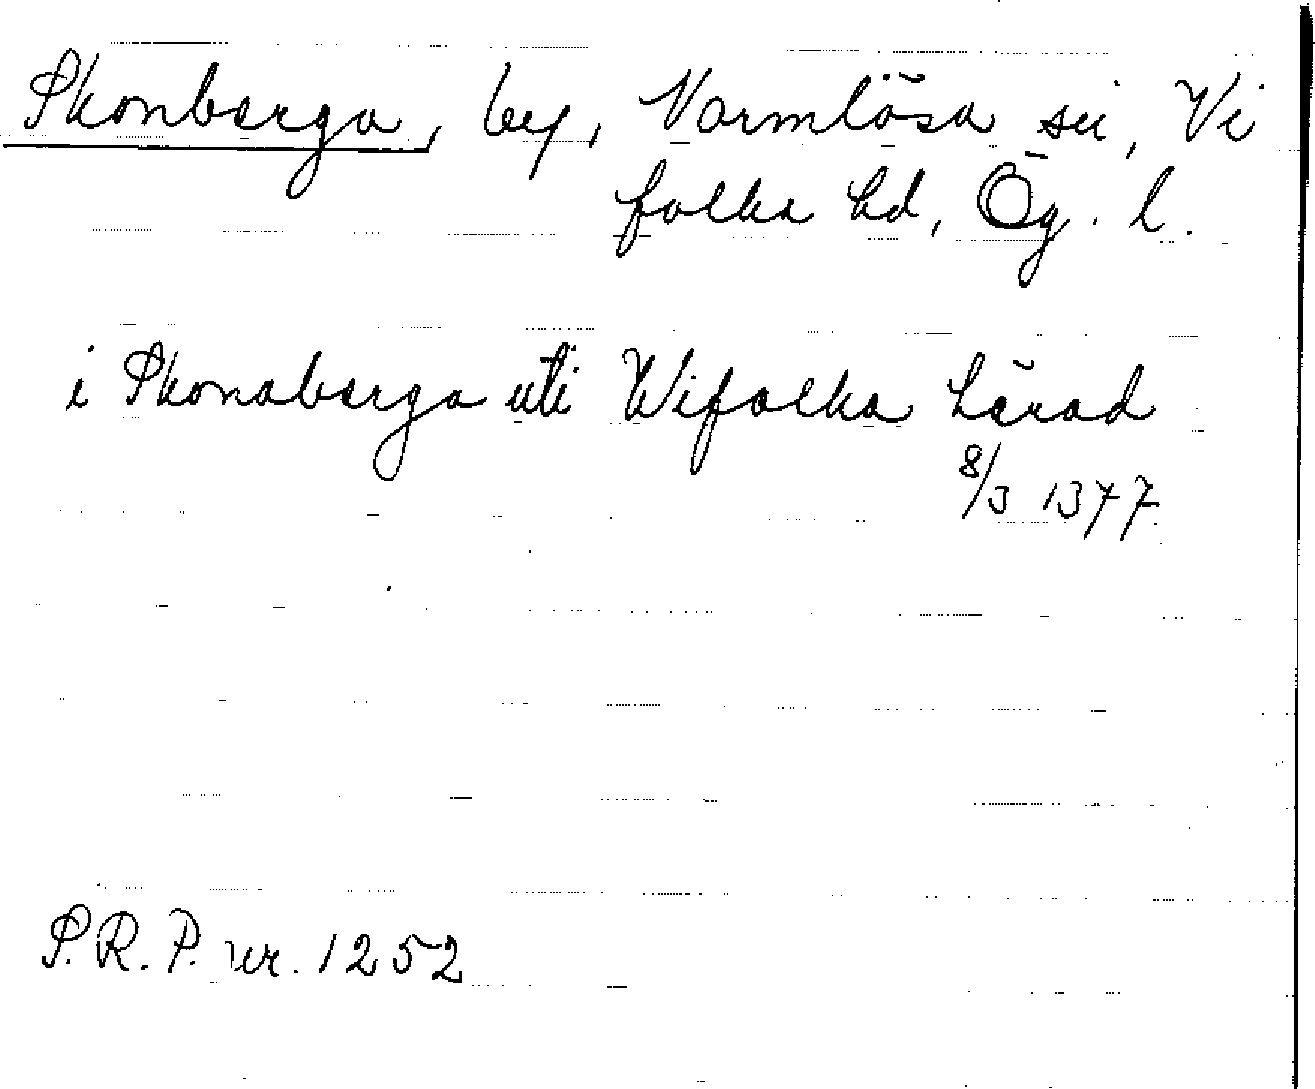 Skonberga, by, Normlösa sn, Vi
folka hd, Ög. l.
i Skonaberga uti Wifolka härad
8/3 1377
S.R.P. nr. 1252